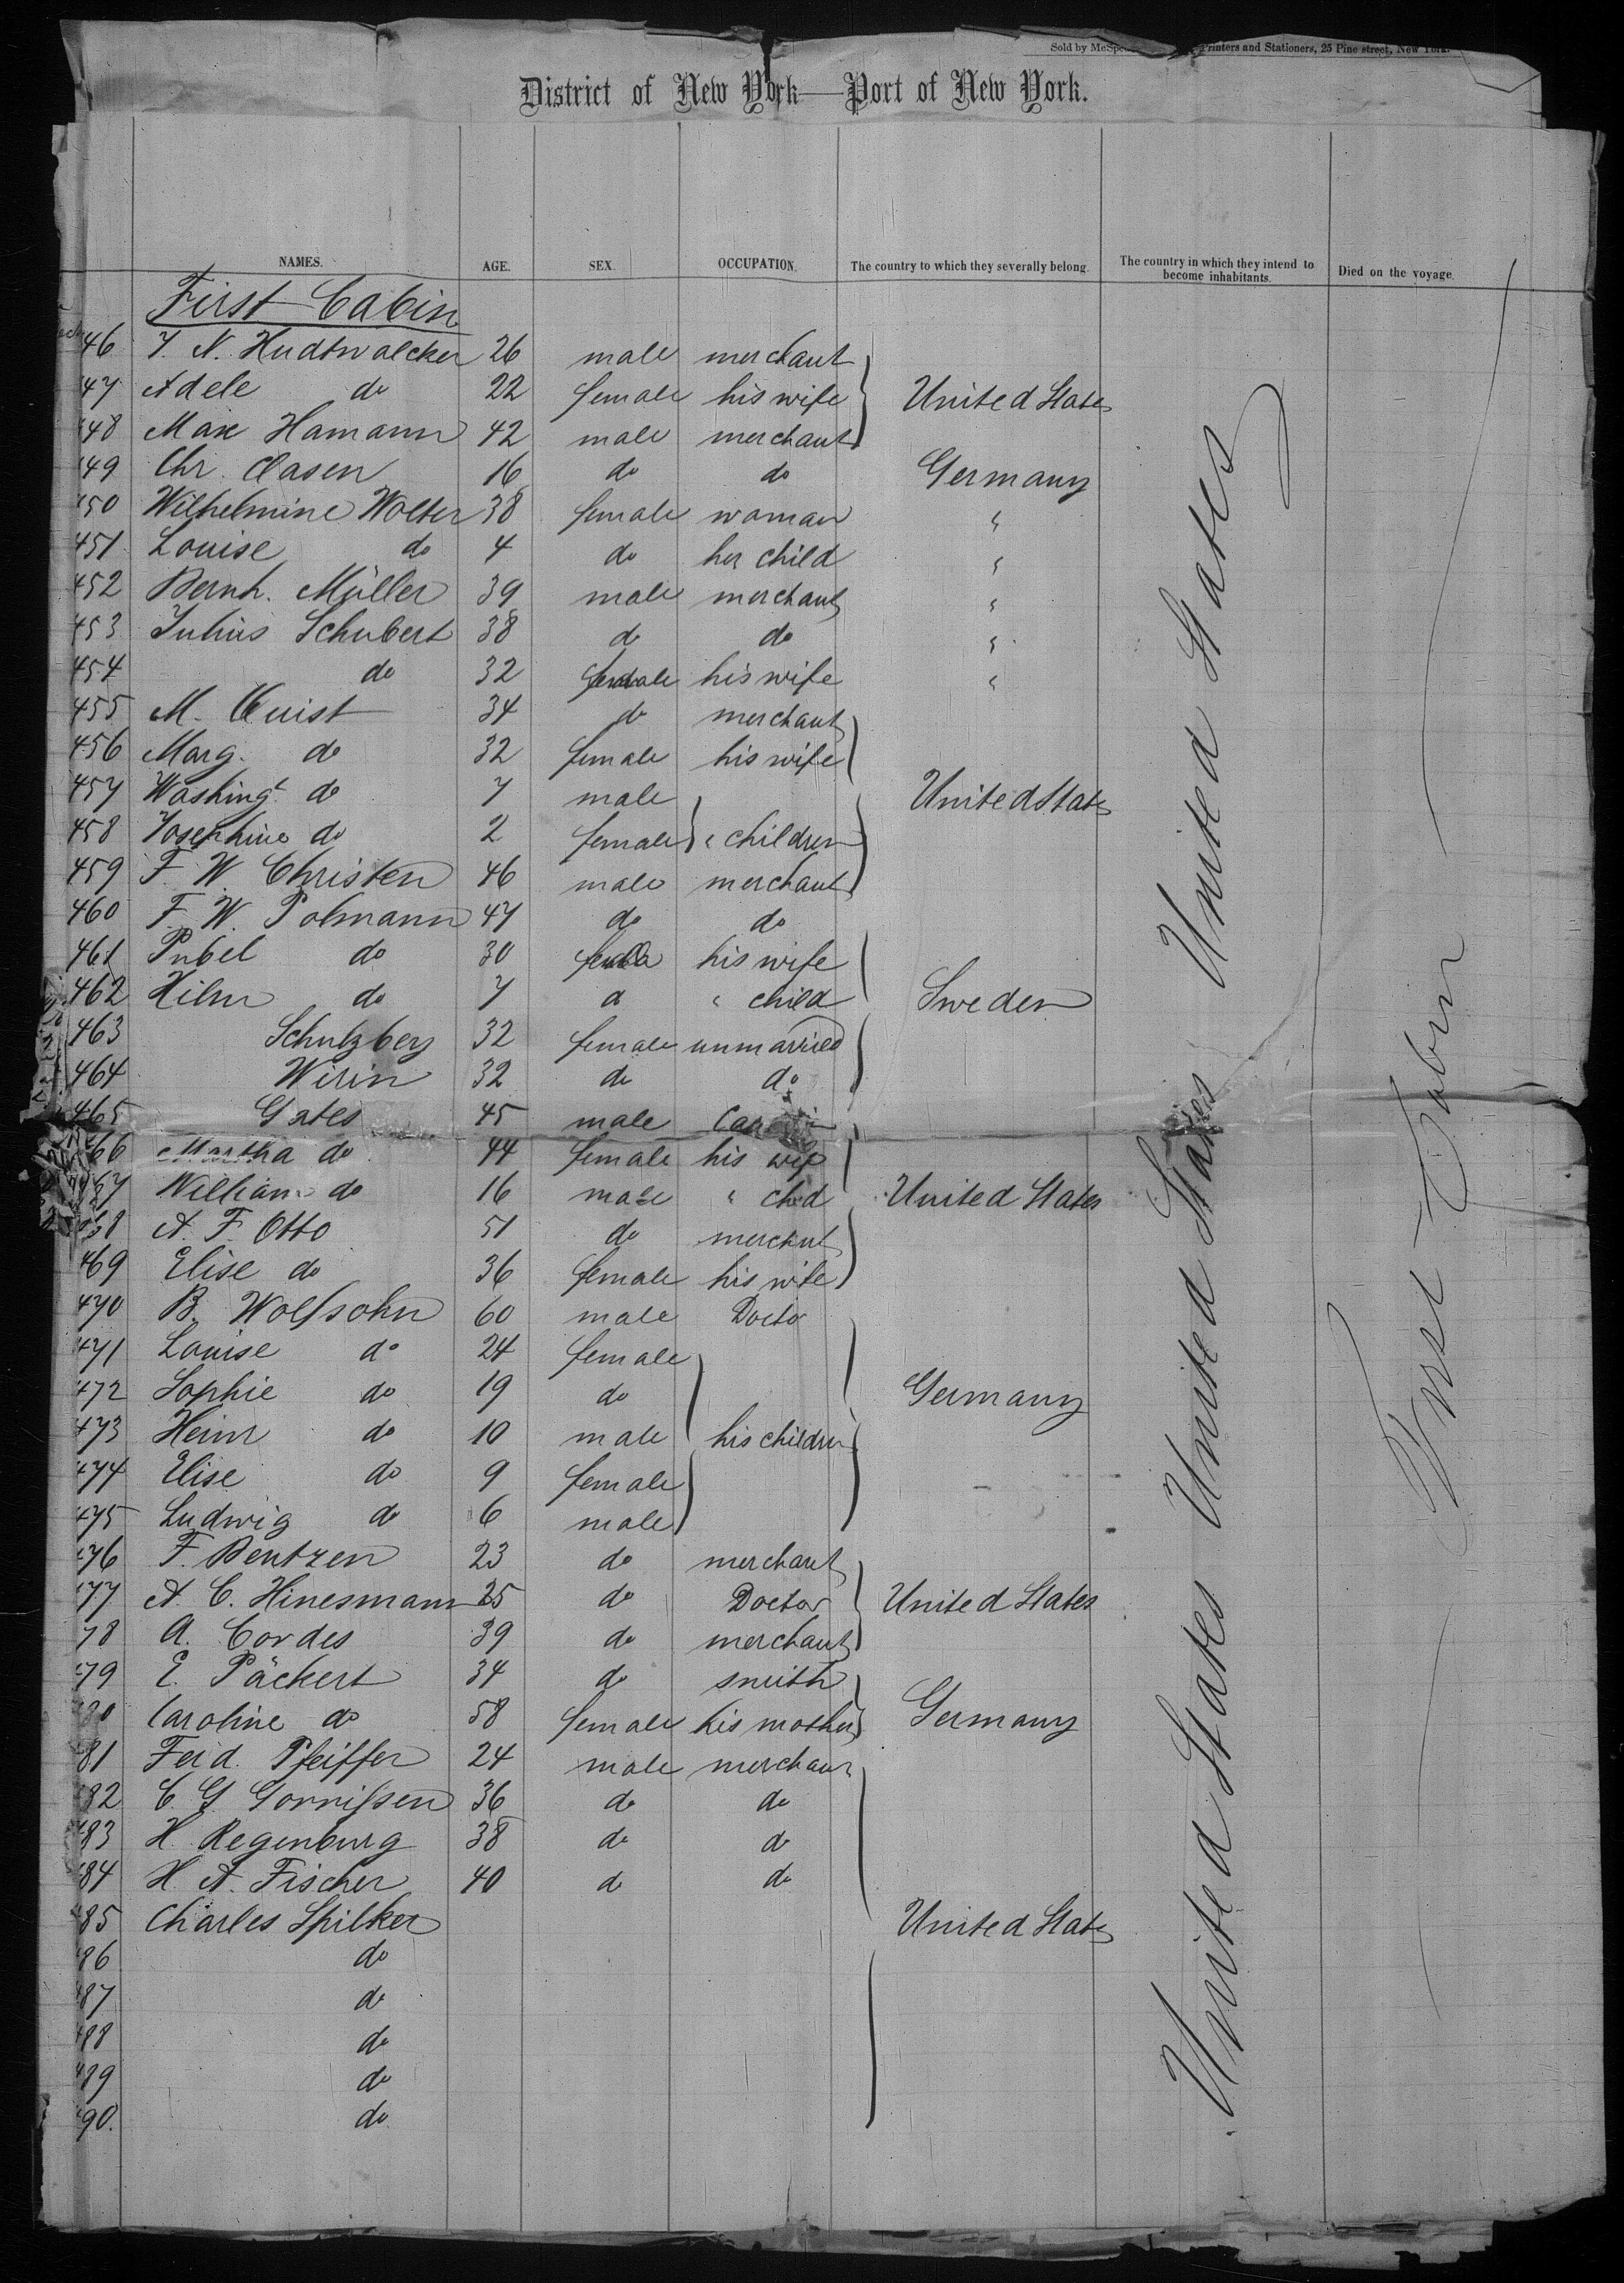 Sold by McSpe Printers and Stationers, 25 Pine street, New York.
District of New York—Port of New York.
NAMES. AGE. SEX. OCCUPATION. The country to which they severally belong. The country in which they intend to become inhabitants. Died on the voyage.
First Cabin
46 J. N. Hudtwalcker 26 male merchant
47 Adele do 22 female his wife United States
48 Max Hamann 42 male merchant
49 Chr. Clasen 16 do do Germany
50 Wilhelmine Wolter 38 female woman "
451 Louise do 4 do her child "
452 Bernh. Müller 39 male merchant "
453 Julius Schubert 38 do do "
454 do 32 female his wife "
455 M. Quist 34 do merchant
456 Marg. do 32 female his wife
457 Washingt do 7 male United States
458 Josephine do 2 female " children
459 F. W. Christen 46 male merchant
460 F. W. Polmann 47 do do
461 do 30 his wife
462 Hilm do 7 d " child Sweden
463 Schulzberg 32 female unmarried
464 Wirin 32 do do
465 Gates 45 male
66 Martha do 44 female his wife
67 William do 16 male " child United States
68 A. F. Otto 51 do merchant
469 Elise do 36 female his wife
470 B. Wolfsohn 60 male Doctor
471 Louise do 24 female
472 Sophie do 19 do Germany
473 Heinr do 10 male his children
474 Elise do 9 female
475 Ludwig do 6 male
476 F. Bentzen 23 do merchant
477 A. C. Hinesmann 35 do Doctor United States
78 A. Cordes 39 do merchant
479 E. Päckert 34 do smith
80 Caroline do 58 female his mother Germany
81 Ferd. Pfeiffer 24 male merchant
482 C. G. Gorrissen 36 do do
483 H. Regenburg 38 do do
484 H. A. Fischer 40 d do
485 Charles Spilker United States
486 do
487 do
488 do
489 do
490. do
United States United States United States
First Cabin